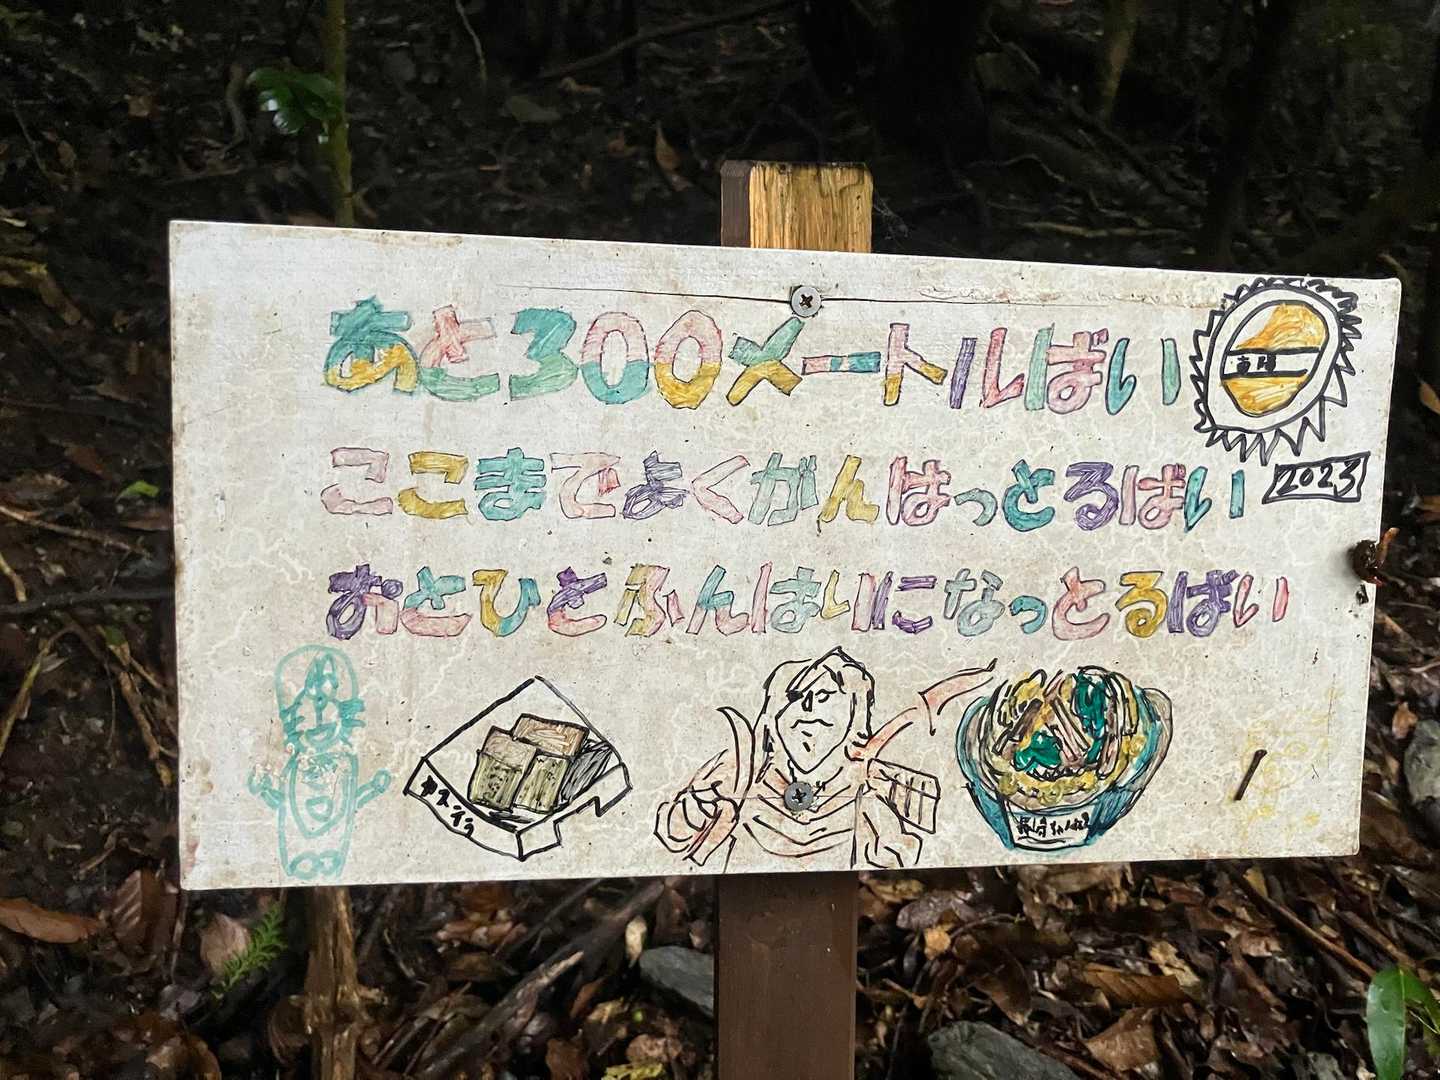 あと300メートルばい
ここまでよくがんはっとるばい
おとひとふんはりになっとるばい
2023
カステラ